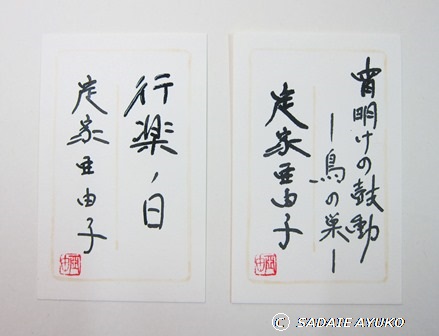 宵明けの鼓動
ー鳥の巣ー
定家亜由子
行楽ノ日
定家亜由子
© SADAIE AYUKO